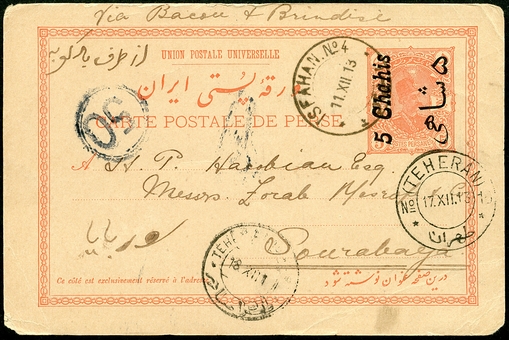 Via Bacou & Brindisi
از طرف بادکوبه
UNION POSTALE UNIVERSELLE
ورقهٔ پستی ایران
CARTE POSTALE DE PERSE
5 Chahis
۵ شاهی
ISFAHAN. No 4
11.XII.13
50
A
Esq.
Messrs.
Sourabaya
سورابایا
No TEHERAN
17.XII.13
طهران
TEHERAN
18.XII.1
Ce côté est exclusivement réservé à l'adresse
درین صفحه عنوان نوشته شود